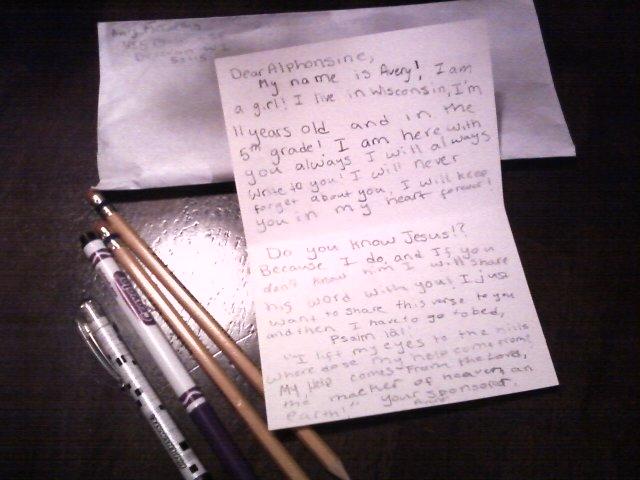 Dear Alphonsine,
My name is Avery! I am
a girl! I live in Wisconsin, I'm
11 years old and in the
5th grade! I am here with
you always I will always
write to you! I will never
forget about you, I will keep
you in my heart forever!
Do you know Jesus!?
Because I do, and If you
don't know him I will share
his word with you! I just
want to share this verse to you
and then I have to go to bed,
Psalm 121!
"I lift my eyes to the hills
where dose my help come from?
My help comes From the Lord,
the macker of heaven an
earth!" your sponsorer,
Crayola